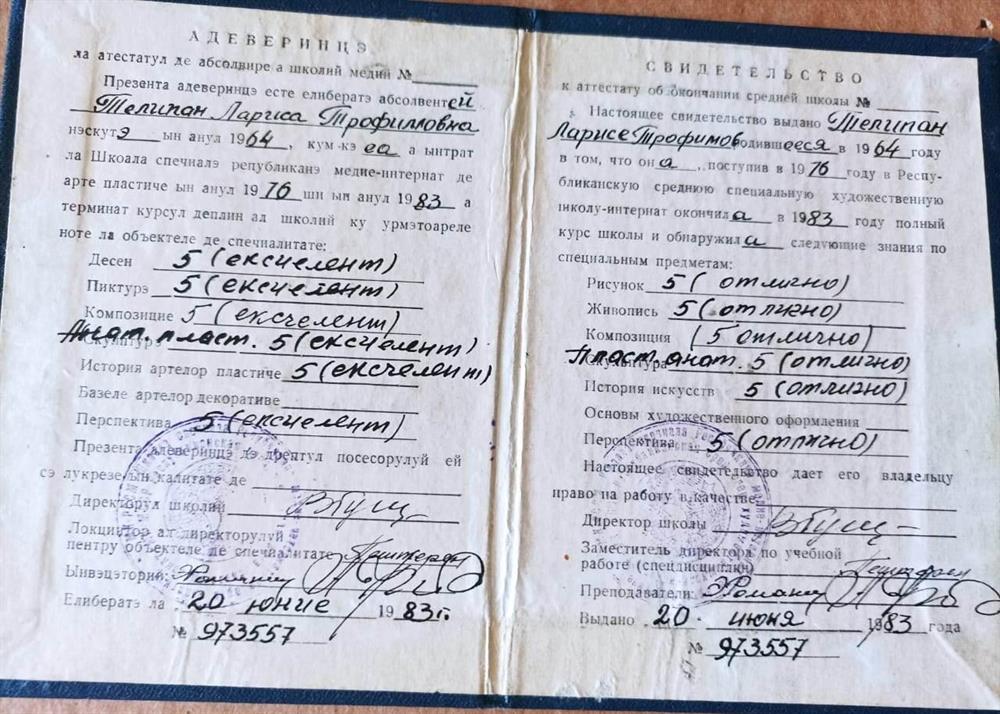 АДЕВЕРИНЦЭ
ла атестатул де абсолвире а школий медий №
Презента адеверинцэ есте елибератэ абсолвентей
Телипан Лариса Трофимовна
нэскутэ ын анул 1964, кум кэ еа а ынтрат
ла Школа спечиалэ републиканэ медие-интернат де
арте пластиче ын анул 1976 ши ын анул 1983 а
терминат курсул деплин ал школий ку урмэтоареле
ноте ла объектеле де спечиалитате:
Десен 5 (ексчелент)
Пиктурэ 5 (ексчелент)
Композицие 5 (ексчелент)
Анат. пласт. 5 (ексчелент)
История артелор пластиче 5 (ексчелент)
Базеле артелор декоративе
Перспектива 5 (ексчелент)
Презента адеверинцэ дэ дрептул посесорулуй ей
сэ лукрезе ын калитате де
Директорул школий
Локциитор ал директорулуй
пентру объектеле де спечиалитате
Ынвэцэторий:
Елибератэ ла 20 юние 1983 г.
№ 973557
СВИДЕТЕЛЬСТВО
к аттестату об окончании средней школы №
Настоящее свидетельство выдано Телипан
Ларисе Трофимов родившееся в 1964 году
в том, что она, поступив в 1976 году в Респу-
бликанскую среднюю специальную художественную
школу-интернат окончила в 1983 году полный
курс школы и обнаружила следующие знания по
специальным предметам:
Рисунок 5 (отлично)
Живопись 5 (отлично)
Композиция (5 отлично)
Пласт. анат. 5 (отлично)
История искусств 5 (отлично)
Основы художественного оформления
Перспектива 5 (отлично)
Настоящее свидетельство дает его владельцу
право на работу в качестве
Директор школы
Заместитель директора по учебной
работе (спецдисциплин)
Преподаватели:
Выдано 20. июня 1983 года
№ 973557